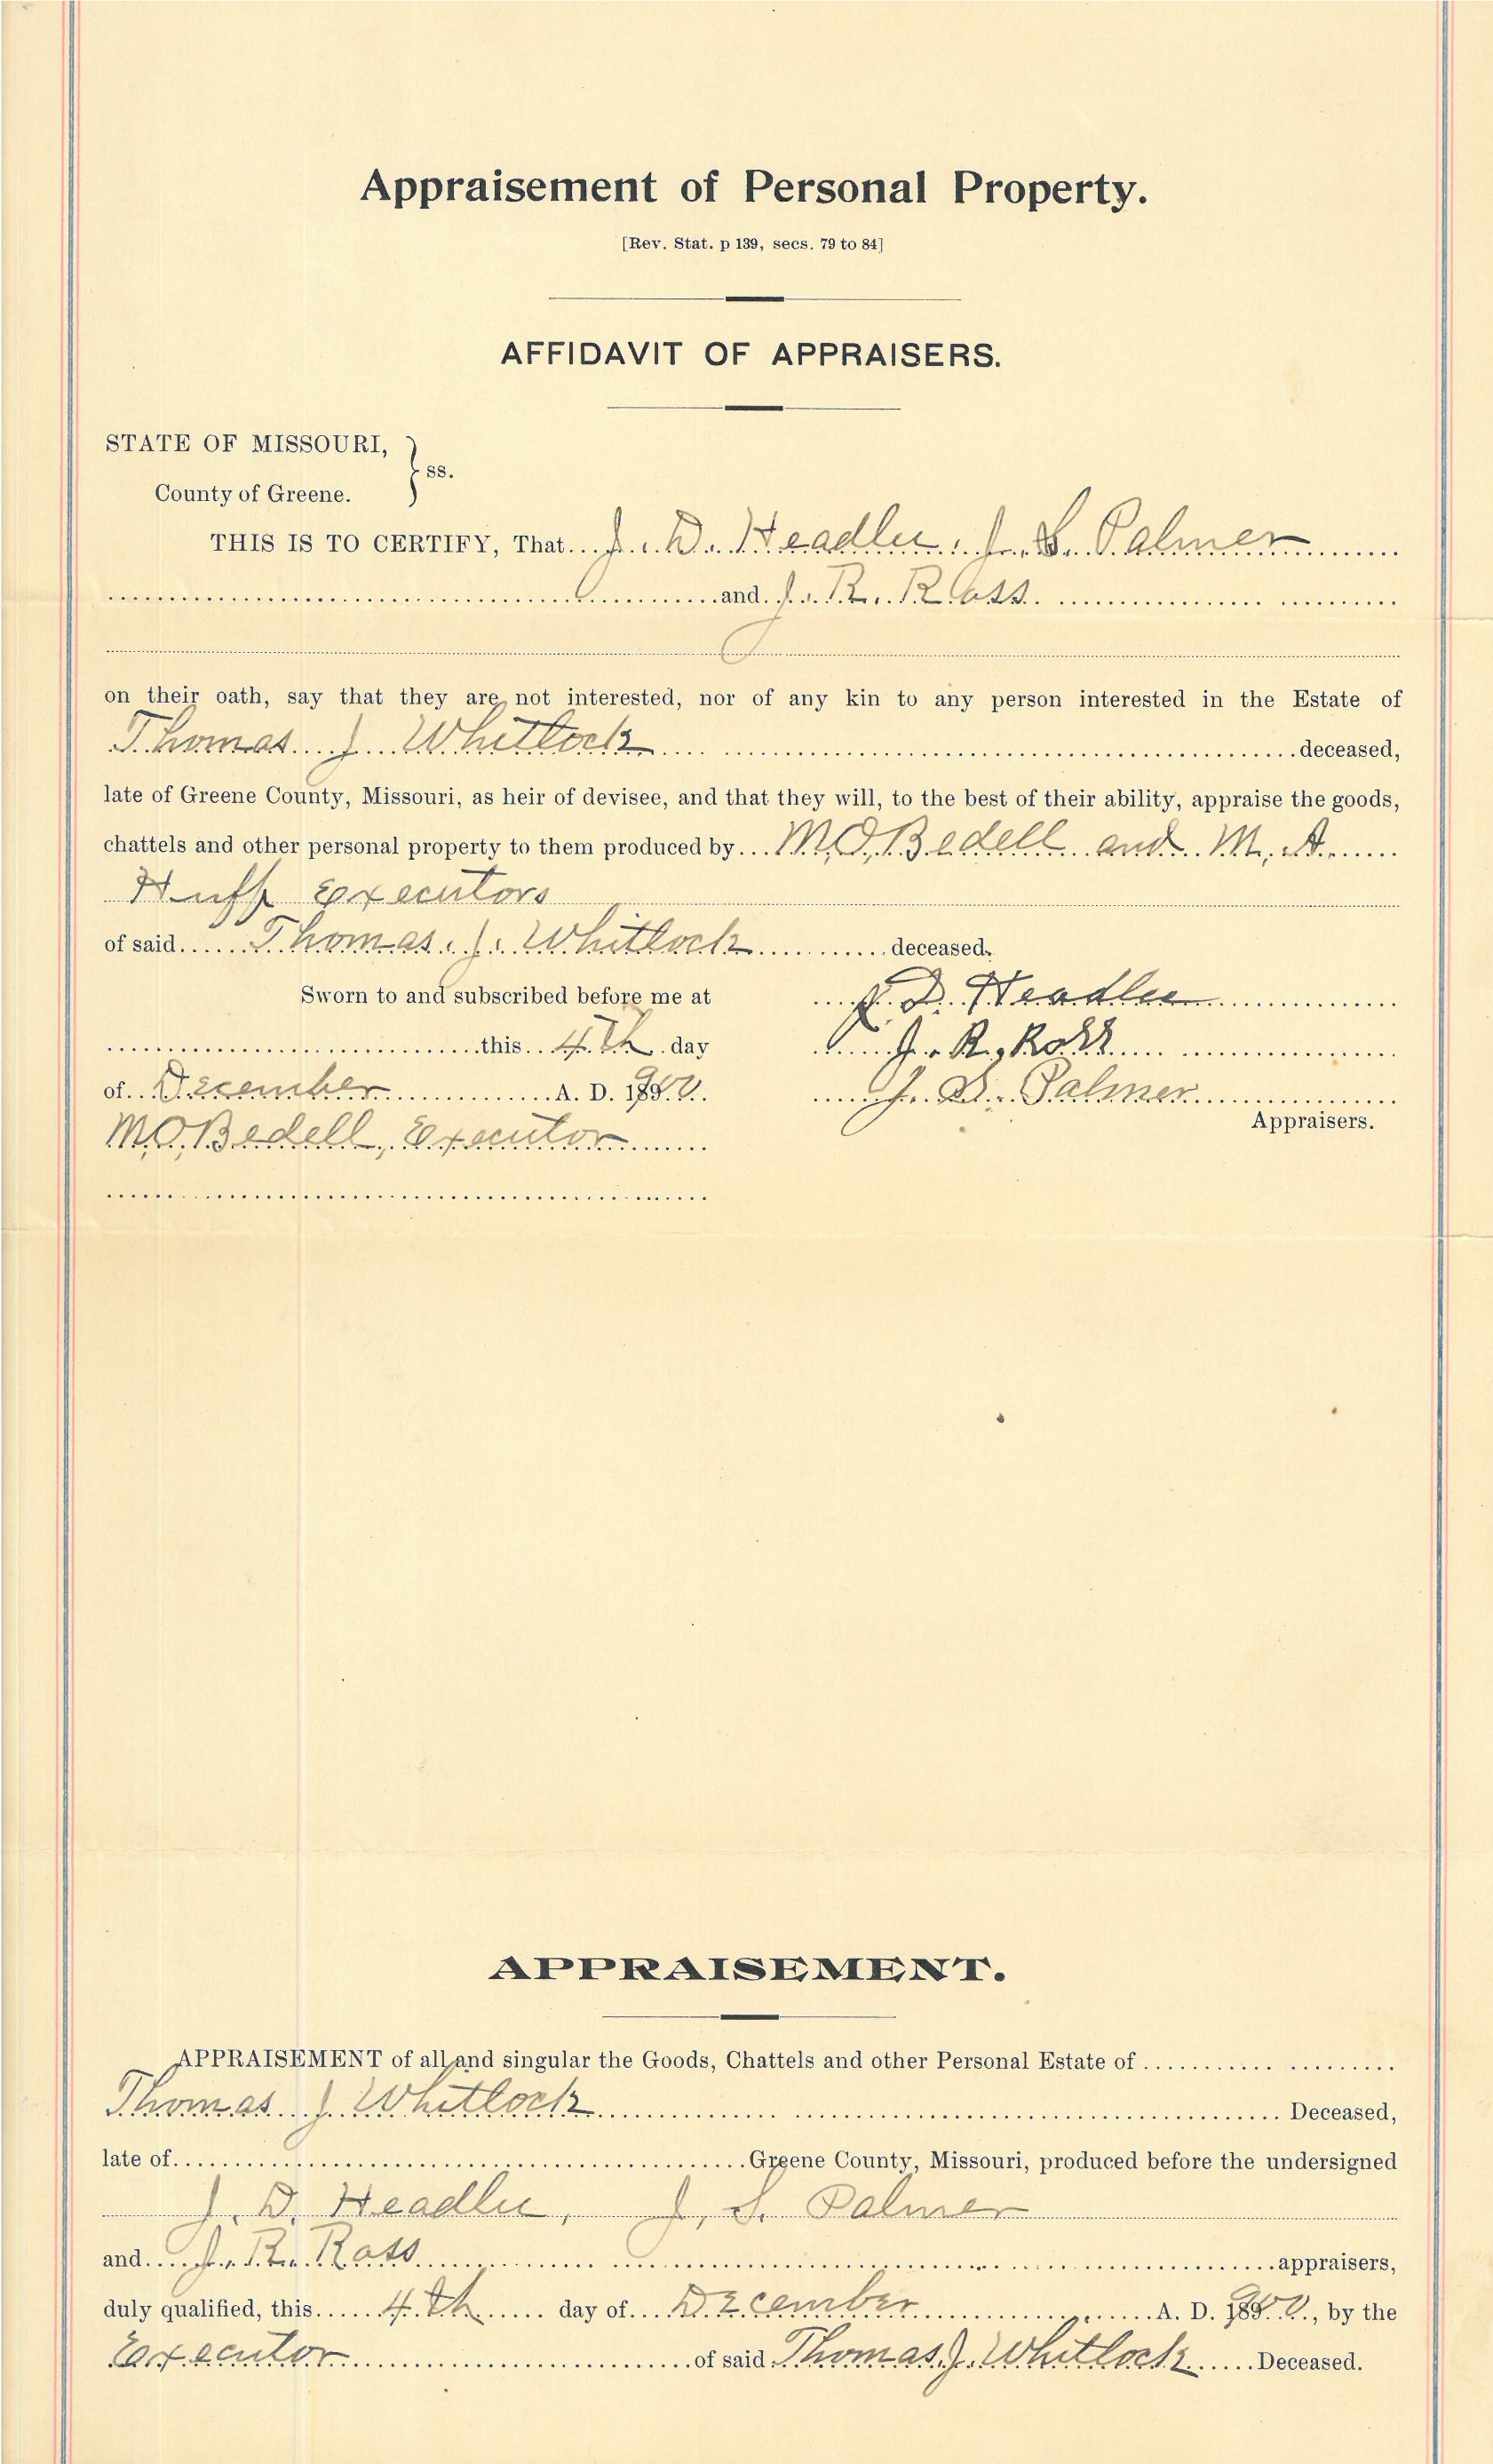 Appraisement of Personal Property.
[Rev. Stat. p 139, secs. 79 to 84]
AFFIDAVIT OF APPRAISERS.
STATE OF MISSOURI,
ss.
County of Greene.
THIS IS TO CERTIFY, That J. D. Headlee, J. S. Palmer
and J. R. Ross
on their oath, say that they are not interested, nor of any kin to any person interested in the Estate of
Thomas J. Whitlock deceased,
late of Greene County, Missouri, as heir of devisee, and that they will, to the best of their ability, appraise the goods,
chattels and other personal property to them produced by M.O. Bedell and M. A.
Huff Executors
of said Thomas J. Whitlock deceased.
Sworn to and subscribed before me at J. D. Headlee
this 4th day J. R. Ross
of December A. D. 1900. J. S. Palmer
Appraisers.
M.O. Bedell, Executor
APPRAISEMENT.
APPRAISEMENT of all and singular the Goods, Chattels and other Personal Estate of
Thomas J. Whitlock Deceased,
late of Greene County, Missouri, produced before the undersigned
J. D. Headlee, J. S. Palmer
and J. R. Ross appraisers,
duly qualified, this 4th day of December A. D. 1900, by the
Executor of said Thomas J. Whitlock Deceased.